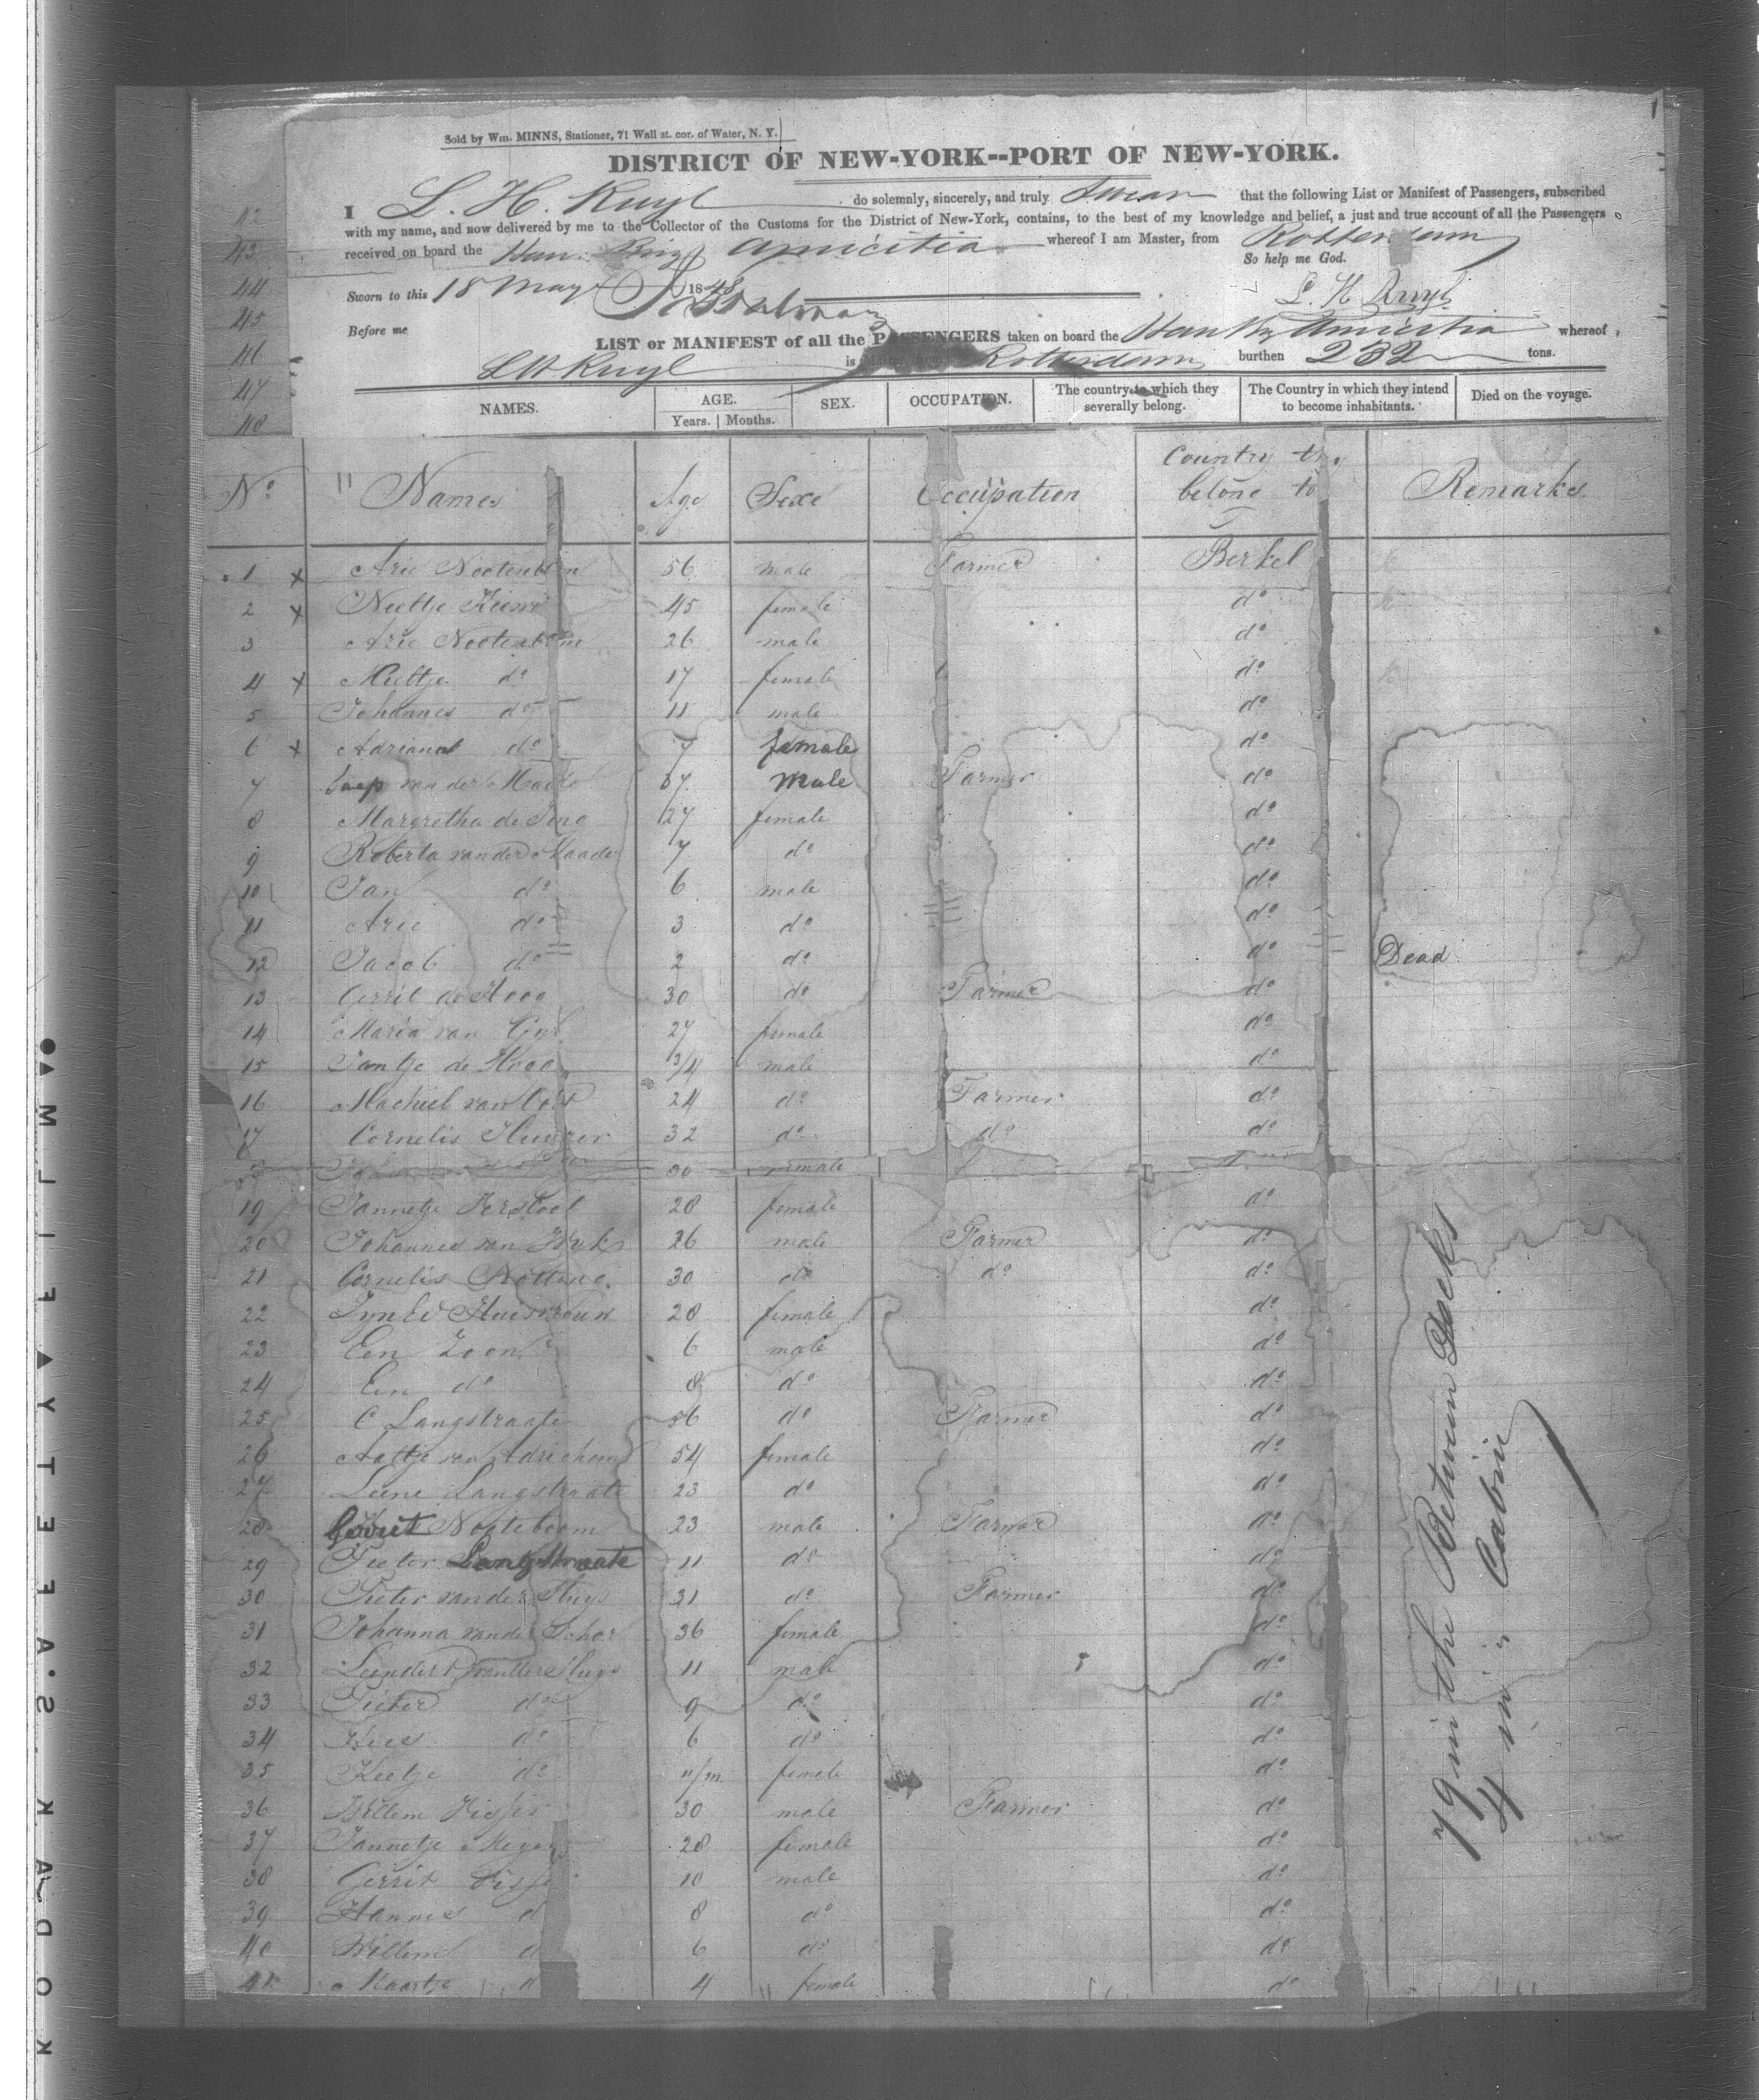 Sold by Wm. MINNS, Stationer, 71 Wall st. cor. of Water, N. Y.
DISTRICT OF NEW-YORK--PORT OF NEW-YORK.
I L. H. Kuyl do solemnly, sincerely, and truly Swear that the following List or Manifest of Passengers, subscribed
with my name, and now delivered by me to the Collector of the Customs for the District of New-York, contains, to the best of my knowledge and belief, a just and true account of all the Passengers
received on board the Han. Brig Amicitia whereof I am Master, from Rotterdam
So help me God.
Sworn to this 18 May 1848 L. H. Kuyl
Before me
LIST or MANIFEST of all the PASSENGERS taken on board the Han Brig Amicitia whereof
LH Kuyl is Master, from Rotterdam burthen 232 tons.
NAMES. AGE. Years. Months. SEX. OCCUPATION. The country to which they severally belong. The Country in which they intend to become inhabitants. Died on the voyage.
No. Names Age Sexe Occupation Country the belong to Remarks
1 x Arie Nootenboom 56 male Farmer Berkel
2 x Neeltje 45 female do
3 Arie Nootenboom 26 male do
4 x Meltje do 17 female do
5 Johannes do 11 male do
6 x Adriana do 7 female do
7 Jaap van der Maade 37 Male Farmer do
8 Margretha de 27 female do
9 Roberta van der Maade 7 do do
10 Jan do 6 male do
11 Arie do 3 do do
12 Jacob do 2 do do Dead
13 Gerrit de Hoog 30 do Farmer do
14 Maria van 27 female do
15 Jantje de Hoog 3/4 male do
16 Machiel van 24 do Farmer do
17 Cornelis Huyzer 32 do do do
30 male
19 Jannetje Verstoot 28 female do
20 Johannes van Dyk 26 male Farmer do
21 Cornelis Notting 30 do do do
22 Huisvrouw 28 female do
23 Een Zoon 6 male do
24 Een do 8 do do
25 C Langstraate 56 do Farmer do
26 Aaltje van Adrichem 54 female do
27 Leene Langstraate 23 do do
28 Gerrit Nooteboom 23 male Farmer do
29 Pieter Langstraate 11 do do
30 Pieter van der Sluys 31 do Farmer do
31 Johanna van der Schor 36 female do
32 Leendert van der Sluys 11 male do
33 Pieter do 9 do do
34 Kees do 6 do do
35 Keetje do 11/m female do
36 Willem Visser 30 male Farmer do
37 Jannetje Meyer 28 female do
38 Gerrit Visse 10 male do
39 Hannes d 8 do do
40 Willem d 6 do do
41 Maartje d 4 female do
79 in the Between Decks
4 in " Cabin
42
43
44
45
46
47
48
1
KODAK·SAFETY FILM